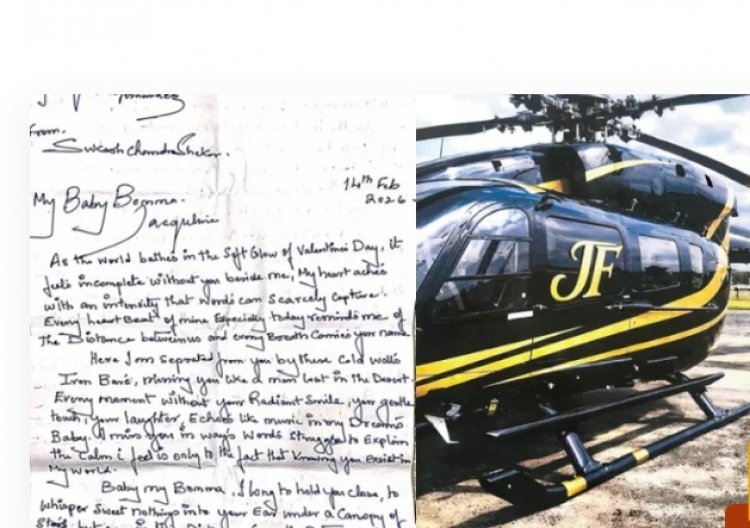 From.
Sukash Chandra Shekar.
14th Feb
2026
My Baby Bomma.
Jacqueline
As the World bathes in the Soft Glow of Valentines Day, it
feels incomplete without you beside me, My heart aches
with an intensity that Words can Scarcely Capture.
Every heart Beat of mine Especially today reminds me of
The Distance between us and every Breath Carries your name
Here I am seprated from you by these Cold walls
Iron Bars, missing you like a man lost in the Desert.
Every moment without your Radiant Smile, your gentle
touch, your laughter, Echoes like music in my Dreams
Baby. I miss you in ways Words Struggle to Explain
the Calm i feel is only to the fact that Knowing you Exist in
My World.
Baby my Bomma, I long to hold you close, to
whisper Sweet nothings into your Ear under a Canopy of
Stars, but
JF